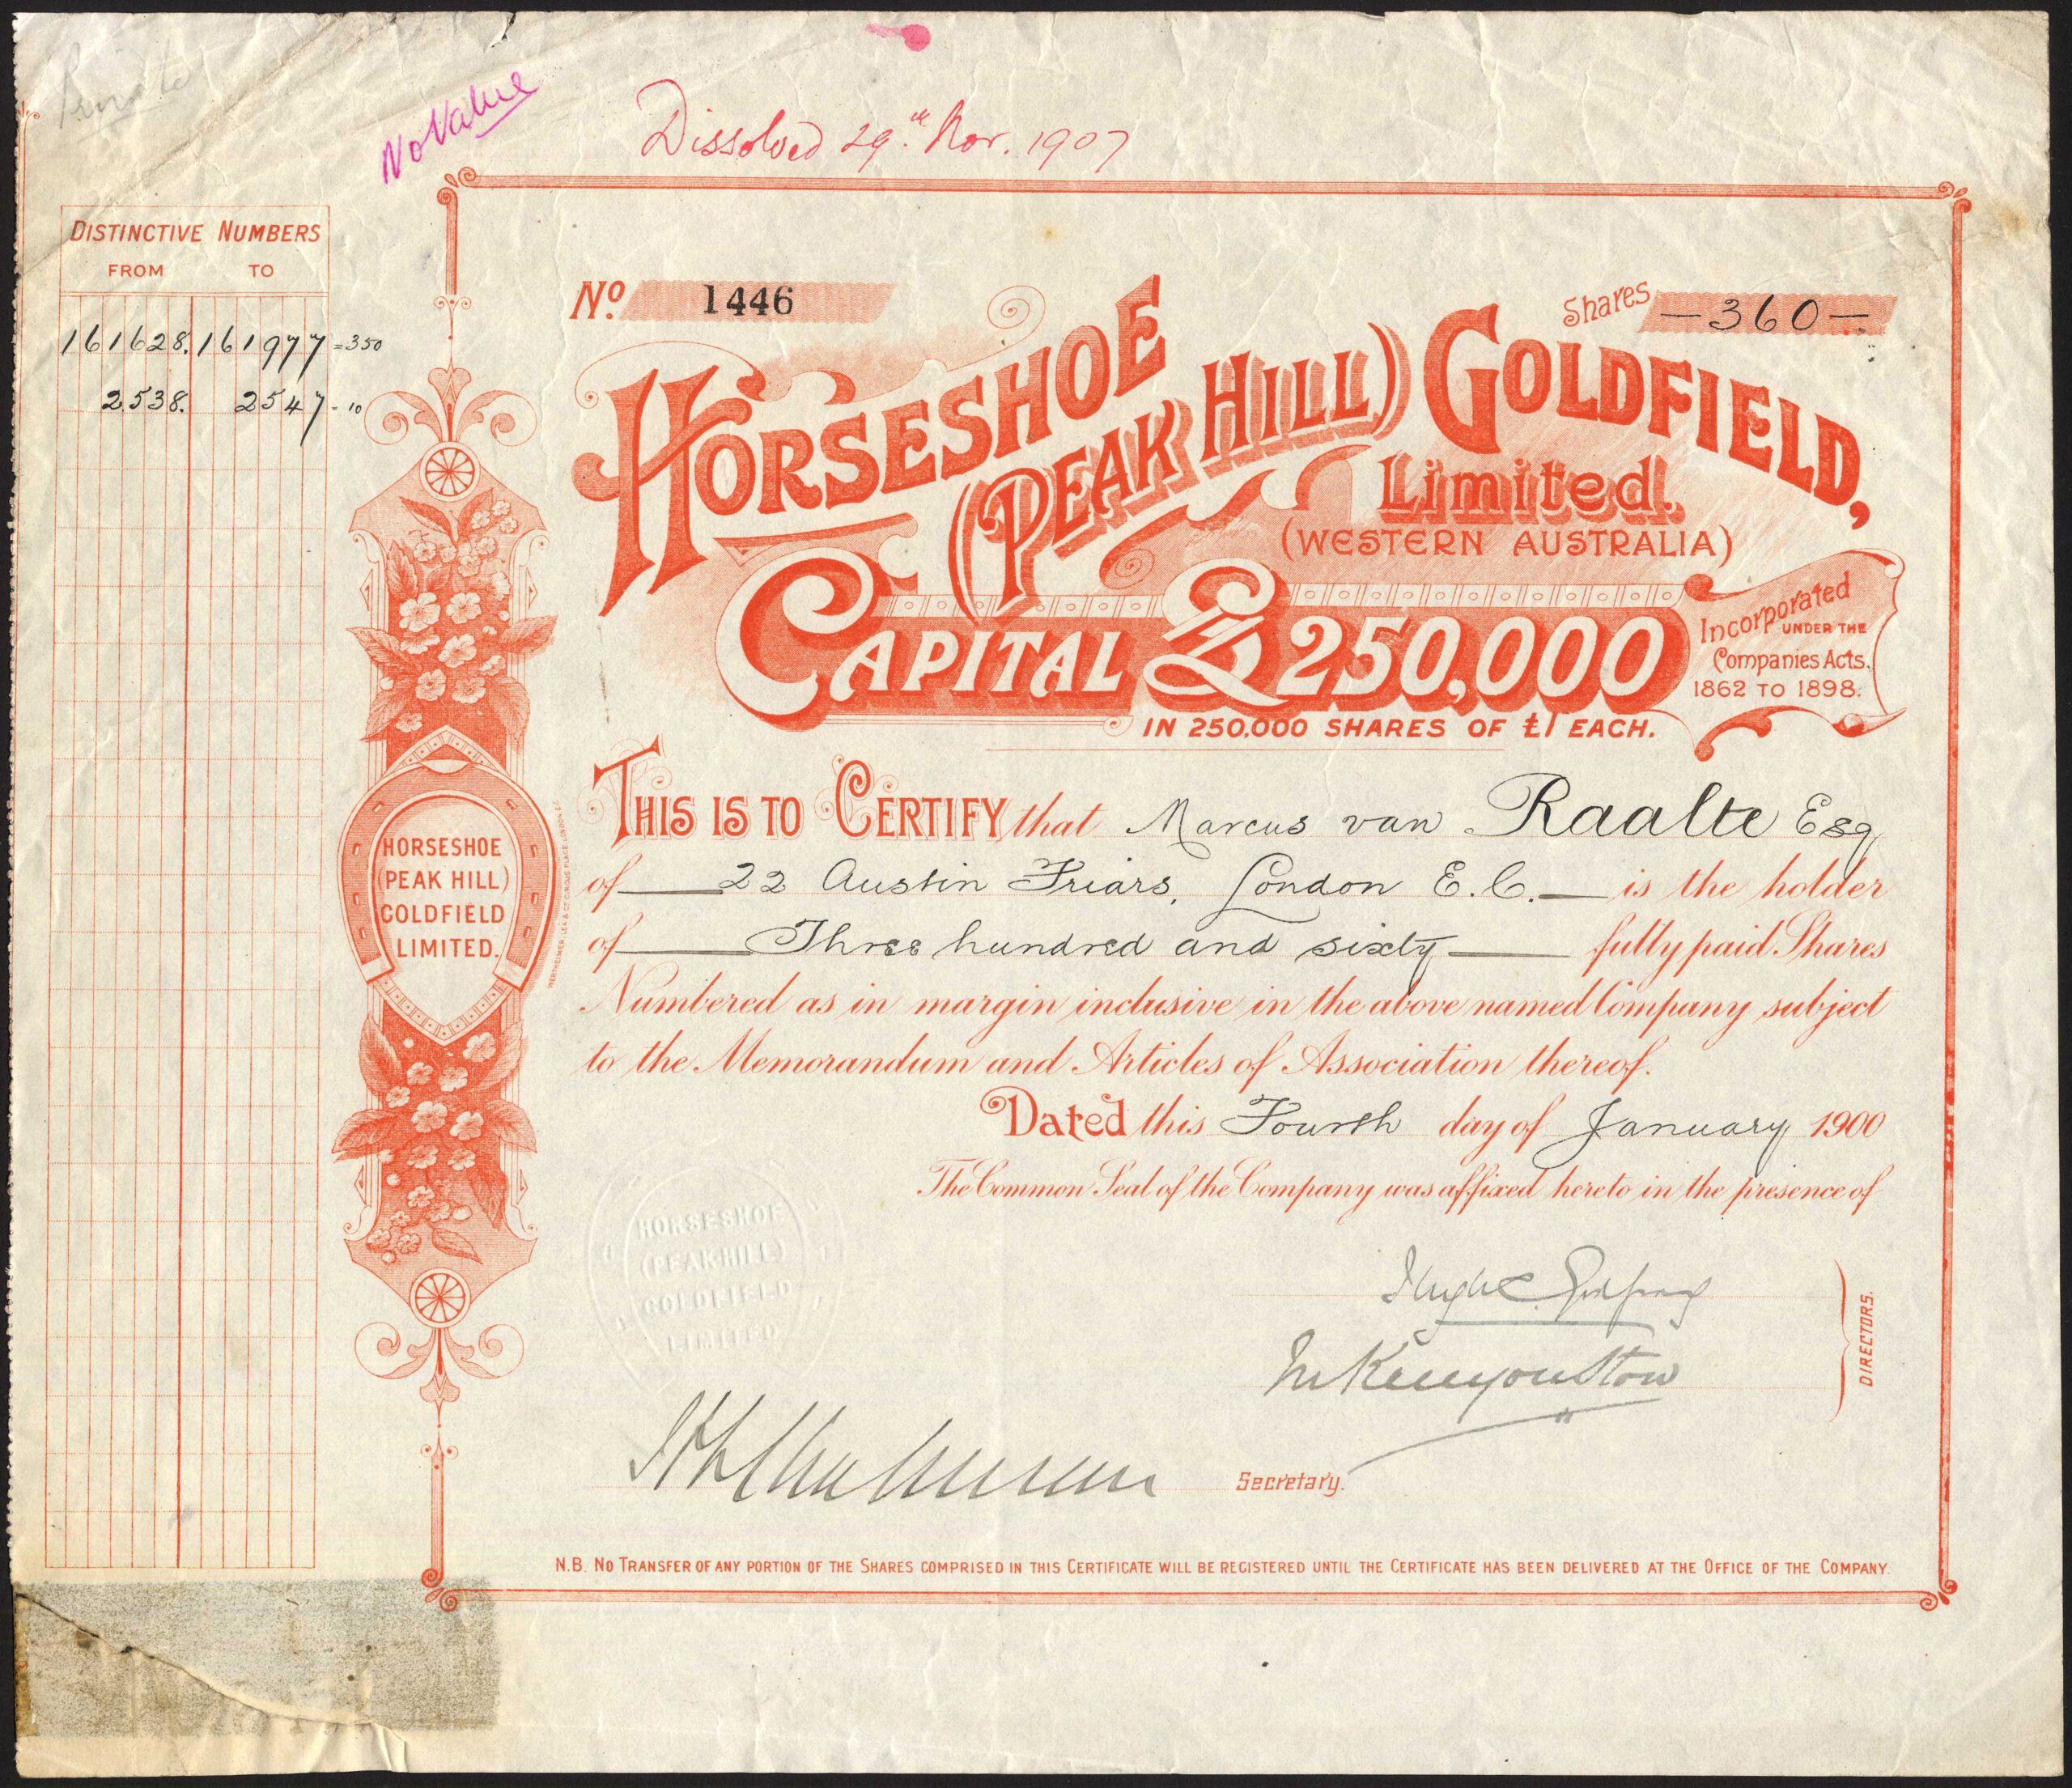 Private
No Value
Dissolved 29th Nov. 1907
DISTINCTIVE NUMBERS
FROM TO
161628. 161977 = 350
2538. 2547 - 10
No. 1446
Shares — 360 —
HORSESHOE
(PEAK HILL) GOLDFIELD,
Limited.
(WESTERN AUSTRALIA)
CAPITAL £250,000
IN 250,000 SHARES OF £1 EACH.
Incorporated
UNDER THE
Companies Acts.
1862 TO 1898.
HORSESHOE
(PEAK HILL)
GOLDFIELD
LIMITED.
THIS IS TO CERTIFY that Marcus van Raalte Esq
of — 22 Austin Friars, London E.C. — is the holder
of — Three hundred and sixty — fully paid Shares
Numbered as in margin inclusive in the above named Company subject
to the Memorandum and Articles of Association thereof.
Dated this Fourth day of January 1900
The Common Seal of the Company was affixed hereto in the presence of
HORSESHOE
(PEAK HILL)
GOLDFIELD
LIMITED
DIRECTORS.
Secretary.
N.B. NO TRANSFER OF ANY PORTION OF THE SHARES COMPRISED IN THIS CERTIFICATE WILL BE REGISTERED UNTIL THE CERTIFICATE HAS BEEN DELIVERED AT THE OFFICE OF THE COMPANY.